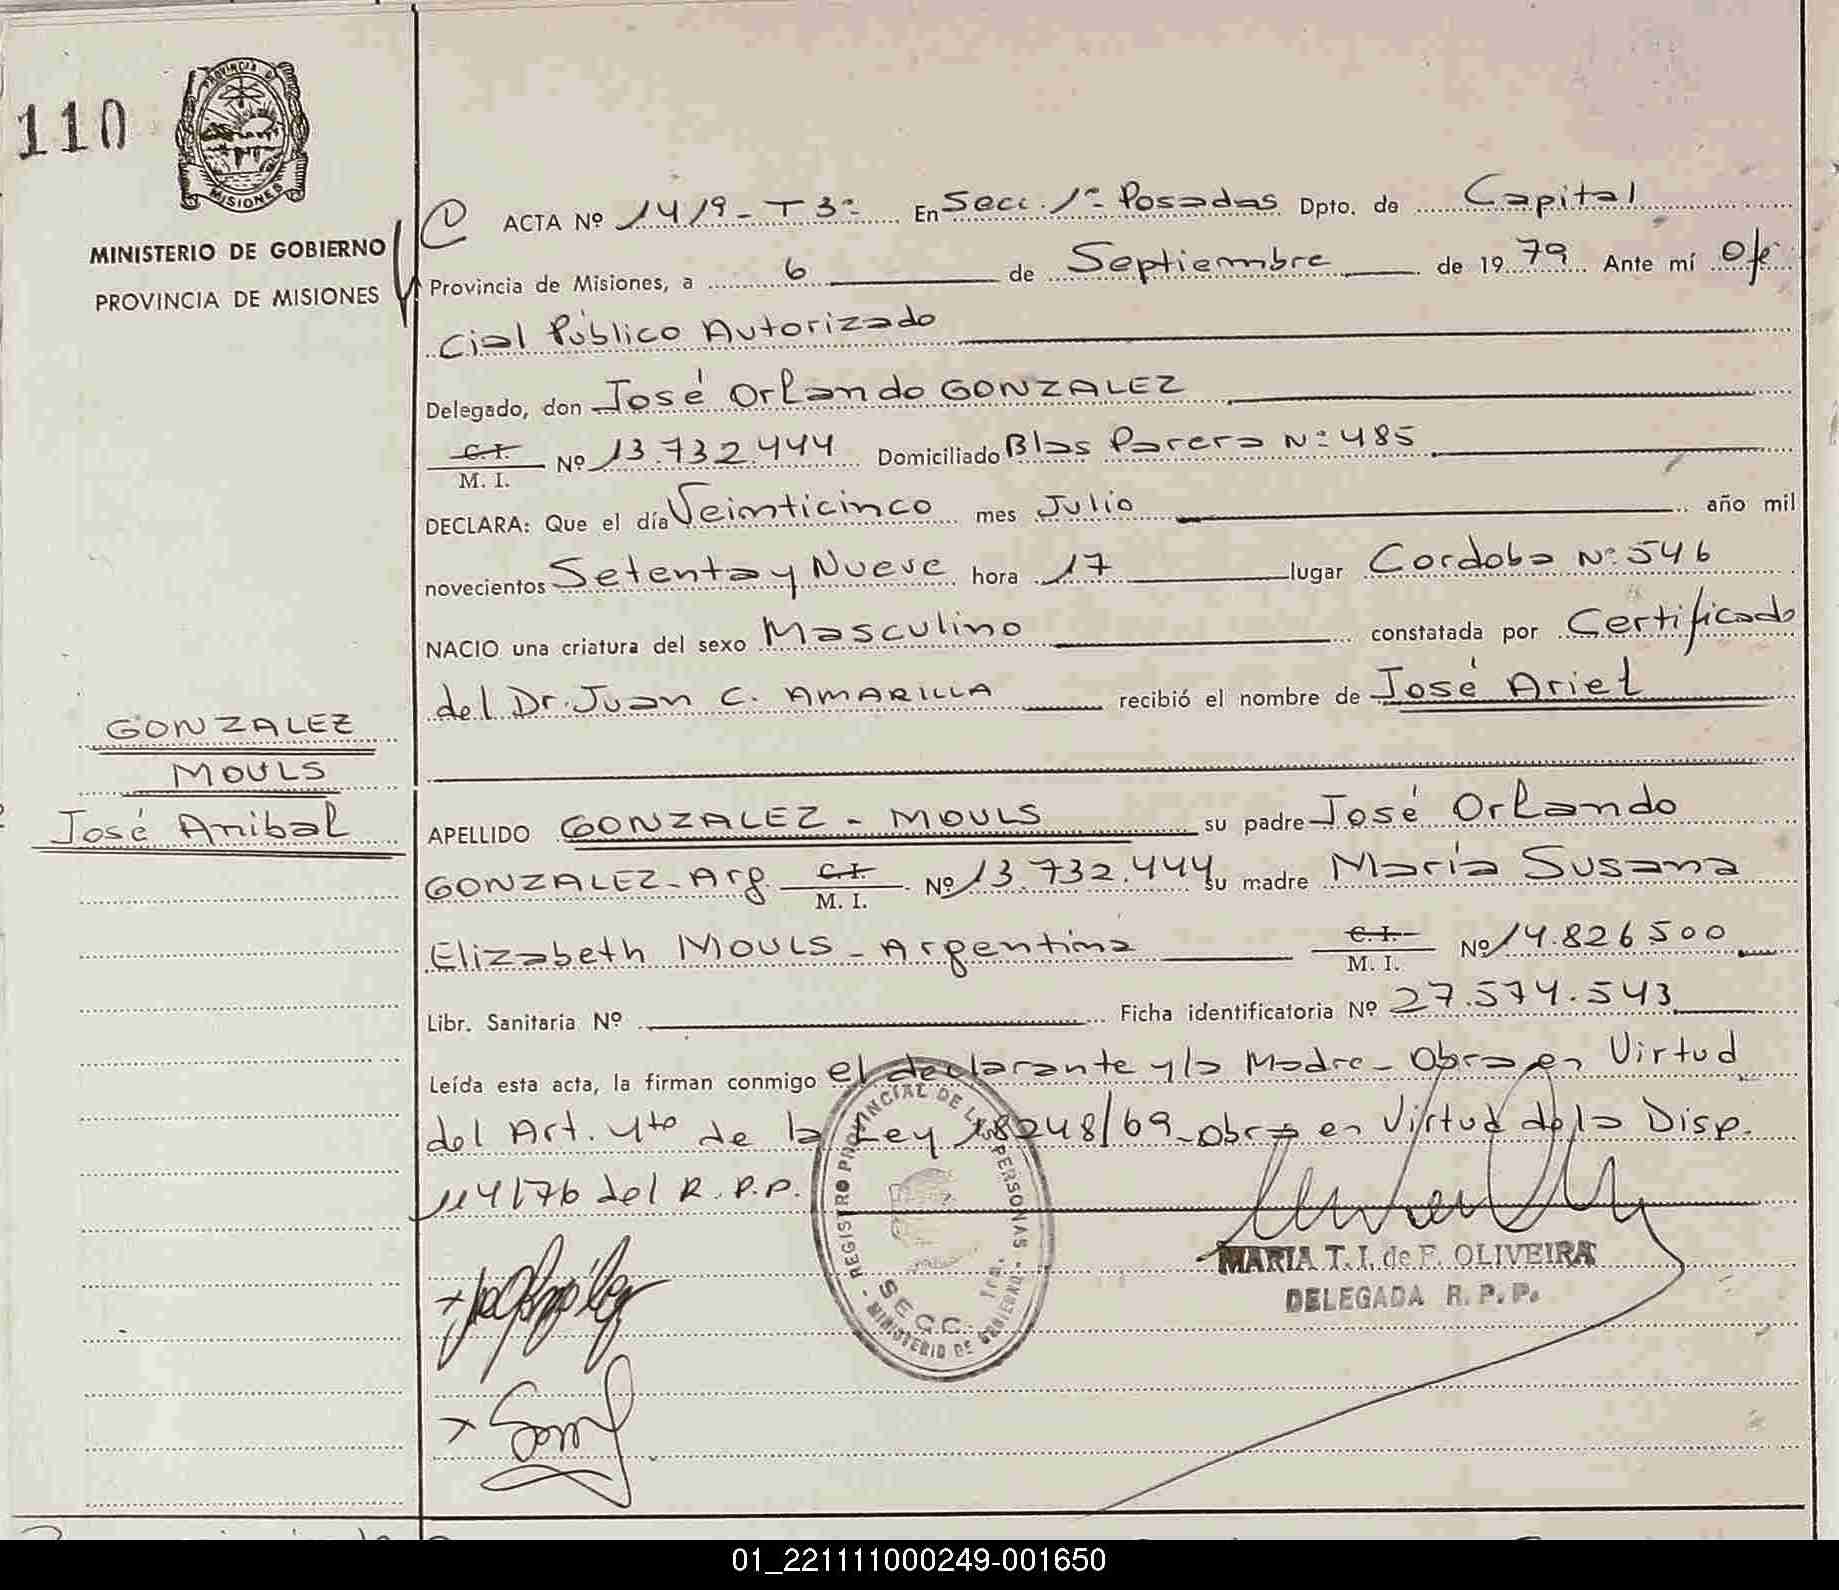 110
PROVINCIA DE
MISIONES
MINISTERIO DE GOBIERNO
PROVINCIA DE MISIONES
ACTA Nº 1419 - T 3º En Secc. 1º Posadas Dpto. de Capital
Provincia de Misiones, a 6 de Septiembre de 19 79 Ante mí Ofi
cial Público Autorizado
Delegado, don José Orlando GONZALEZ
C.I. M. I. Nº 13.732.444 Domiciliado Blas Parera Nº 485
DECLARA: Que el día Veinticinco mes Julio año mil
novecientos Setenta y Nueve hora 17 lugar Cordoba Nº 546
NACIO una criatura del sexo Masculino constatada por Certificado
del Dr. Juan C. AMARILLA recibió el nombre de José Ariel
GONZALEZ
MOULS
José Anibal
APELLIDO GONZALEZ - MOULS su padre José Orlando
GONZALEZ - Arg C.I. M. I. Nº 13.732.444 su madre María Susana
Elizabeth MOULS - Argentina C.I. M. I. Nº 14.826500
Libr. Sanitaria Nº Ficha identificatoria Nº 27.574.543
Leída esta acta, la firman conmigo el declarante y la Madre - Obra en Virtud
del Art. 4to de la Ley 18248/69 - obra en Virtud de la Disp.
114/76 del R.P.P.
REGISTRO PROVINCIAL DE LAS PERSONAS
SECC. 1ra.
- MINISTERIO DE GOBIERNO -
MARIA T. I. de F. OLIVEIRA
DELEGADA R. P. P.
01_221111000249-001650